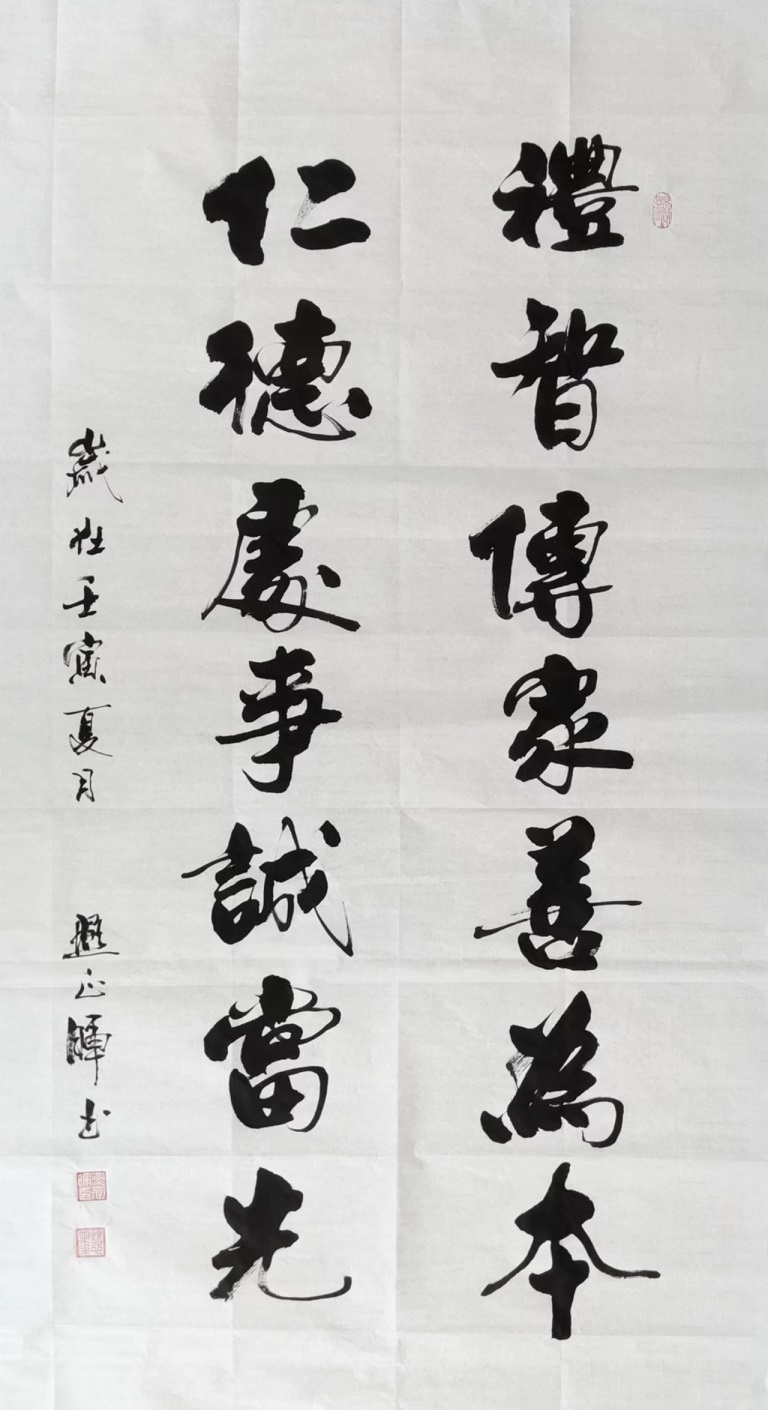 禮智傳家善為本
仁德處事誠當先
歲在壬寅夏月 正暉书